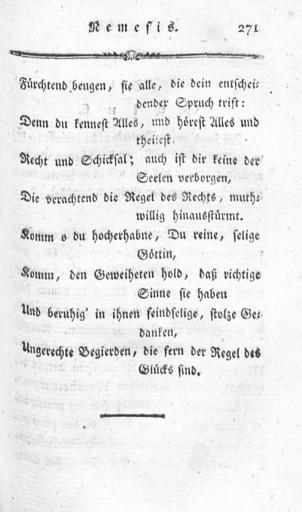 Nemesis. 271
Fürchtend beugen, sie alle, die dein entschei-
dender Spruch trift:
Denn du kennest Alles, und hörest Alles und
theilest
Recht und Schicksal; auch ist dir keine der
Seelen verborgen,
Die verachtend die Regel des Rechts, muth-
willig hinausstürmt.
Komm o du hocherhabne, Du reine, selige
Göttin,
Komm, den Geweiheten hold, daß richtige
Sinne sie haben
Und beruhig' in ihnen feindselige, stolze Ge-
danken,
Ungerechte Begierden, die fern der Regel des
Glücks sind.